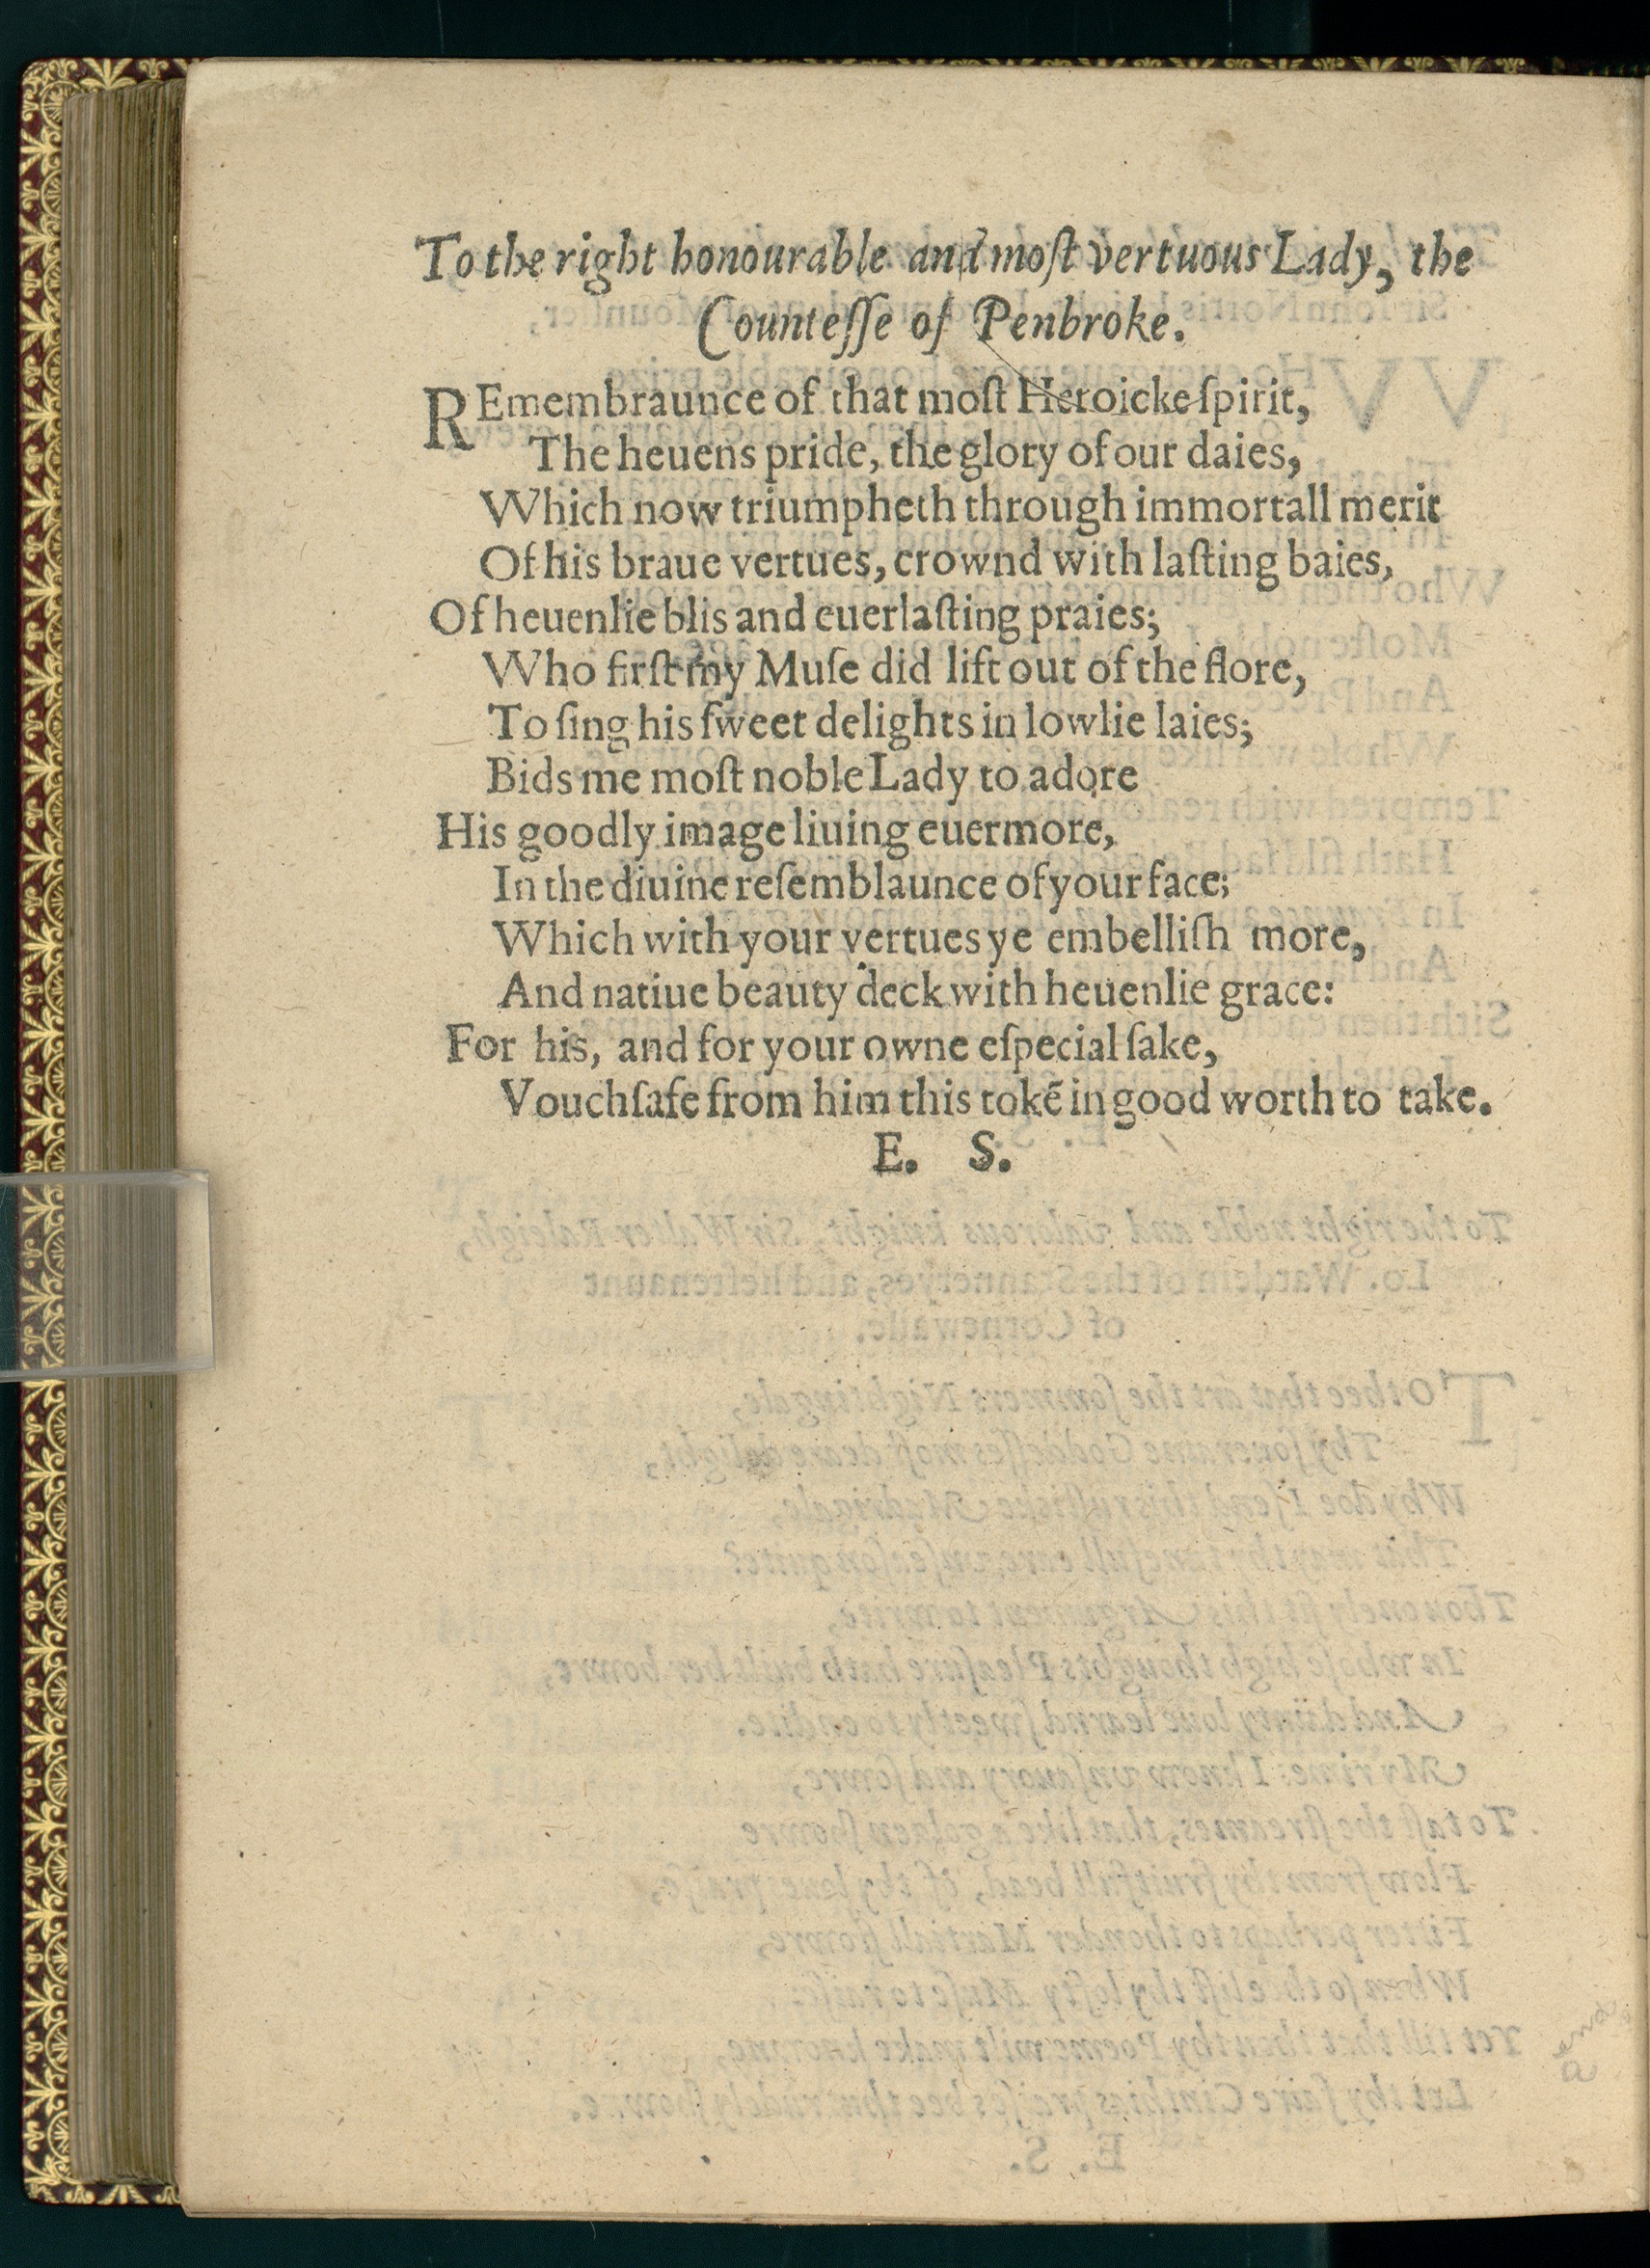 To the right honourable and moſt vertuous Lady, the
Counteſſe of Penbroke.
REmembraunce of that moſt Heroicke ſpirit,
The heuens pride, the glory of our daies,
Which now triumpheth through immortall merit
Of his braue vertues, crownd with laſting baies,
Of heuenlie blis and euerlaſting praies;
Who firſt my Muſe did lift out of the flore,
To ſing his ſweet delights in lowlie laies;
Bids me moſt noble Lady to adore
His goodly image liuing euermore,
In the diuine reſemblaunce of your face;
Which with your vertues ye embelliſh more,
And natiue beauty deck with heuenlie grace:
For his, and for your owne eſpecial ſake,
Vouchſafe from him this tokē in good worth to take.
E. S.